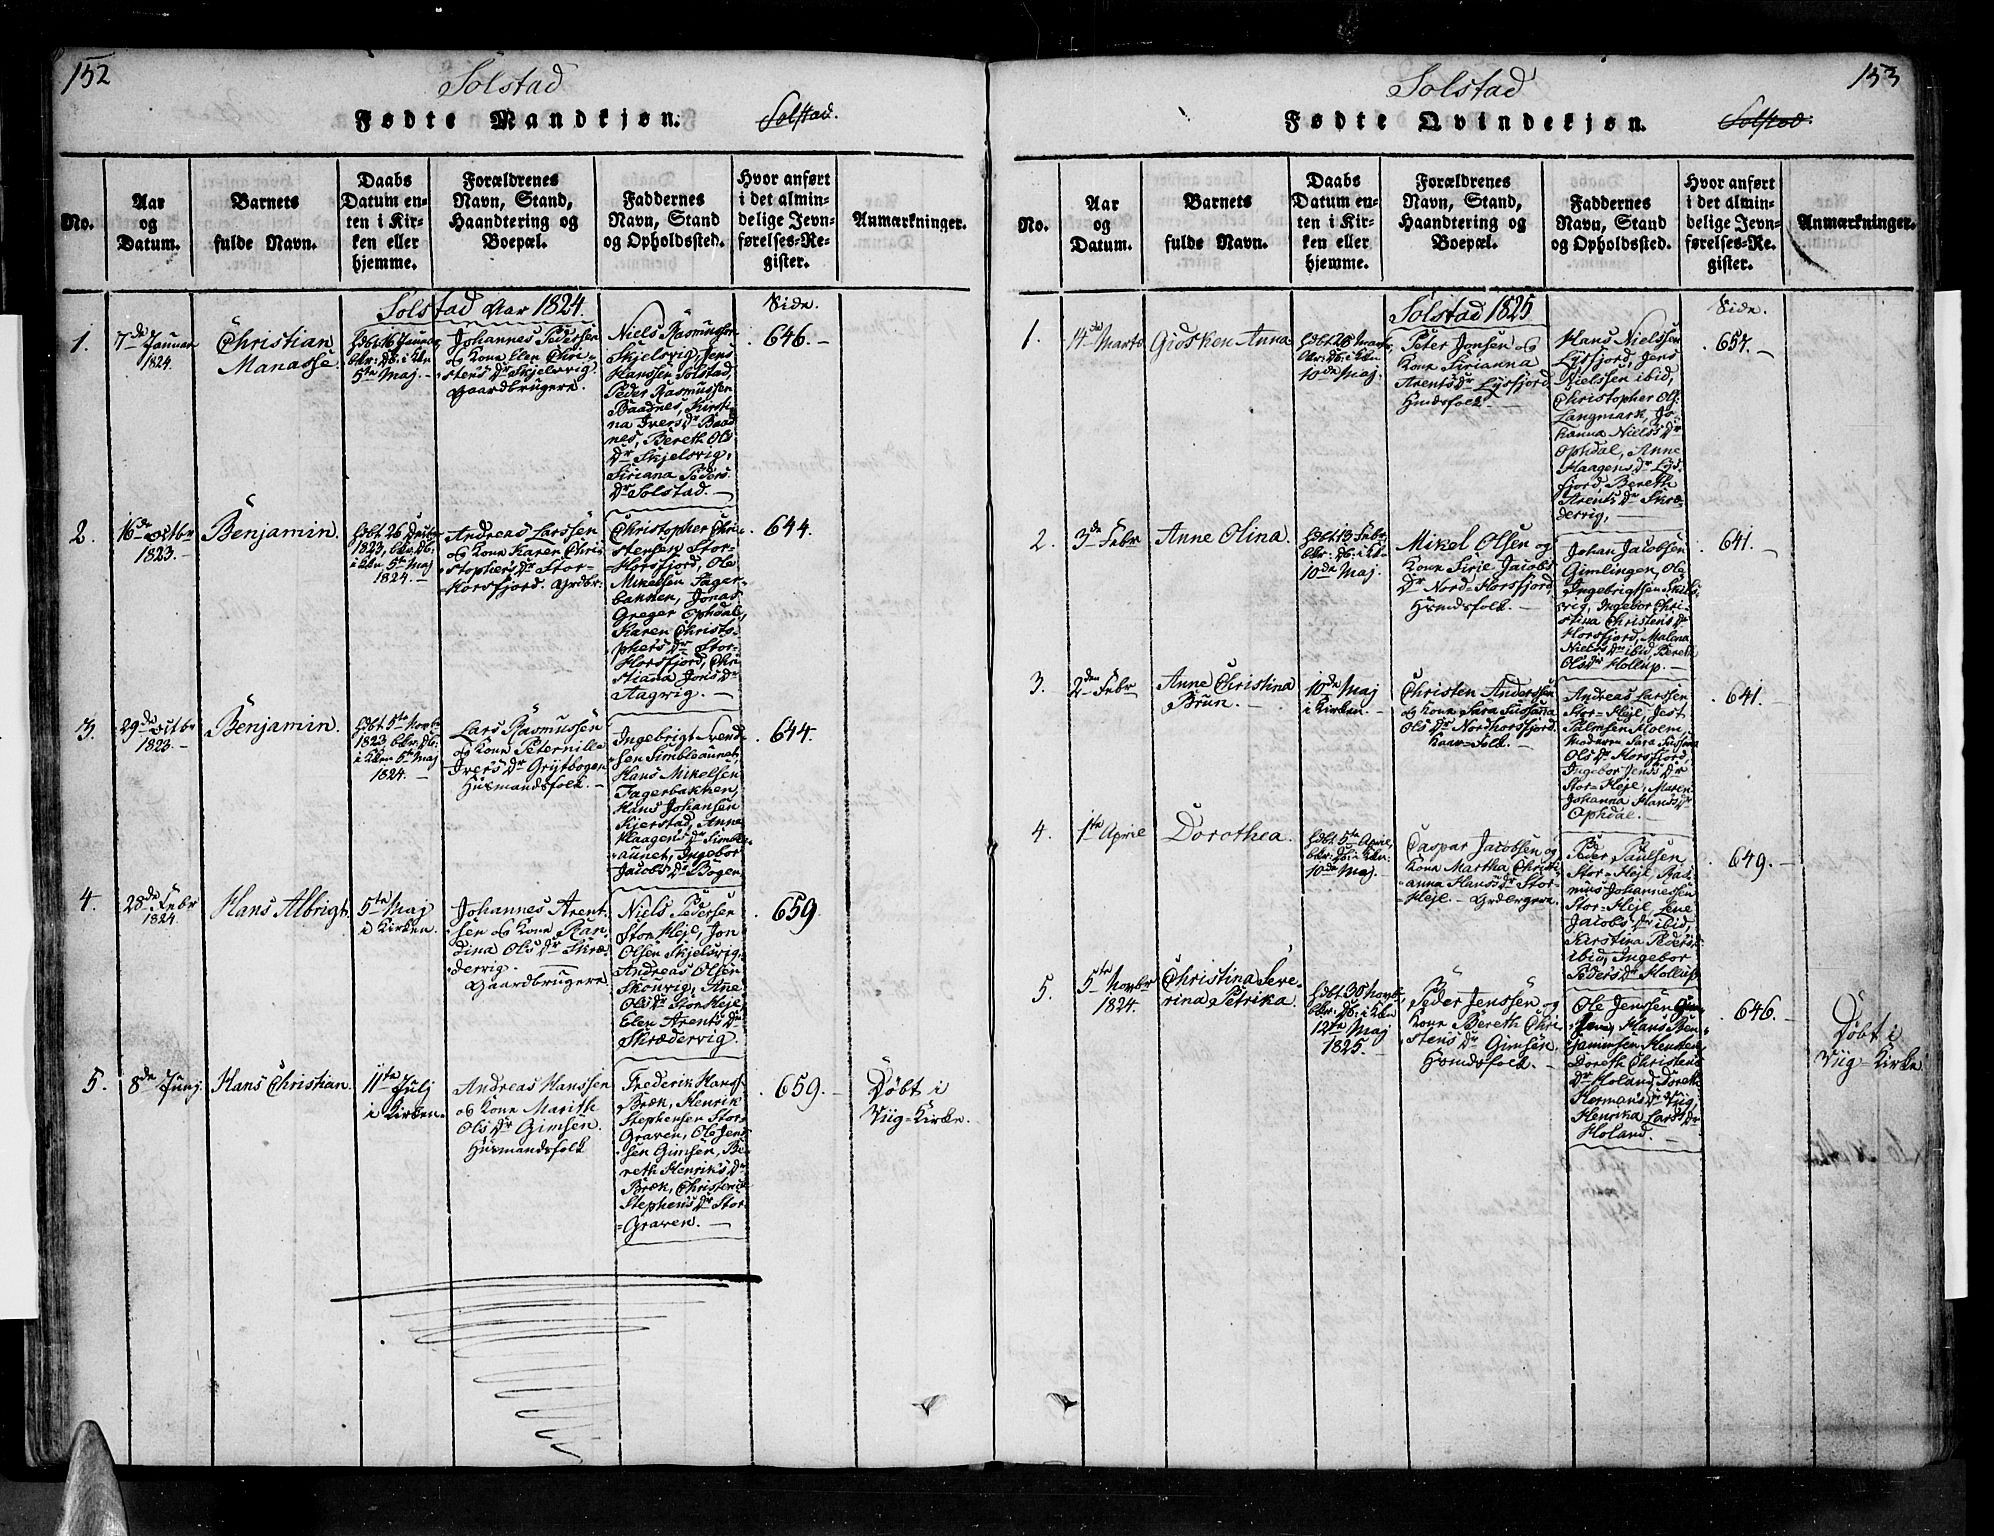 152
Solstad
Fødte Mandkjøn.
Solstad.
No.
Aar
og
Datum.
Barnets
fulde Navn.
Daabs
Datum en-
ten i Kir-
ken eller
hjemme.
Forældrenes
Navn, Stand,
Haandtering og
Boepæl.
Faddernes
Navn, Stand
og Opholdssted.
Hvor anført
i det almin-
delige Jevn-
førelses-Re-
gister.
Anmærkninger.
Solstad Aar 1824.
Side.
1.
7de Januar
1824.
Christian
Manasse.
5te Maj.
Johannes Pedersen
og Kone Elen Chri-
stens Dr Skjelsvig.
Gaardbrugere.
Niels Rasmussen
Skjelsvig, Jens
Hanssen Solstad
Peder Rasmussen
Baadnes, Kirsti-
na Ivers Dr Baad
nes, Bereth Ols
Dr Skjelsvig,
Siriana Peders
Dr Solstad.
646.
2.
16de Octbr
1823.
Benjamin.
1823, bkr. Db.
i Kkn 5te Maj
1824.
Andreas Larssen
og Kone Karen Chri-
stophers Dr Stor-
Horsfjord. Grdbr:
Christopher Chri-
stensen Stor-
Horsfjord, Ole
Mikelsen Fager-
bakken, Jonas
Greger Ophdal,
Karen Christo-
phers Dr Stor-
Horsfjord, Chri-
stiana Jons Dr
Aagvig.
644.
3.
29de Octbr
1823.
Benjamin.
1823, bkr. Db.
i Kkn 5te Maj
1824.
Lars Rasmussen
og Kone Peternille
Ivers Dr Grytbogen
Husmandsfolk.
Ingebrigt Svend
sen Simbleaunet,
Hans Mikelsen
Fagerbakken,
Hans Johansen
Skjerstad, Anne
Haagens Dr Simble-
aunet, Ingebor
Jacobs Dr Bogen
644.
4.
28de Febr
1824.
Hans Albrigt.
5te Maj
i Kirken.
Johannes Arent-
sen og Kone Ran-
dina Ols Dr Skræ-
dervig.
Gaardbrugere
Niels Pedersen
Stor Heje, Jon
Olsen Skjelsvig,
Andreas Olsen
Skonvig, Ane
Ols Dr Stor Heje
Elen Arents Dr
Skrædervig.
659.
5.
8de Junj
Hans Christian.
11te Julj
i Kirken.
Andreas Hanssen
og Kone Marith
Ols Dr Gimsen.
Husmandsfolk
Frederik Hanss-
Bræk, Henrik
Stephensen Stor
Graven, Ole Jens-
sen Gimsen, Be-
reth Henriks Dr
Bræk, Christen
Stephens Dr Stor-
Graven.
659.
Døbt i
Viig-Kirke.
153
Solstad
Fødte Qvindekjøn.
Solstad.
No.
Aar
og
Datum.
Barnets
fulde Navn.
Daabs
Datum en-
ten i Kir-
ken eller
hjemme.
Forældrenes
Navn, Stand,
Haandtering og
Boepæl.
Faddernes
Navn, Stand
og Opholdssted.
Hvor anført
i det almin-
delige Jevn-
førelses-Re-
gister.
Anmærkninger.
Solstad 1825
Side.
1.
14de Marts
Giosken Anna
Hdbt 28 Marts
bkr: Db. i Kkn
10de Maj.
Peter Jonsen og
Kone Sirianna
Arents Dr Lysfjord
Husdsfolk.
Hans Nielssen
Lysfjord, Jens
Nielssen ibid,
Christopher Ols
Langmark, Jo-
hanna Niels Dr
Ophdal, Anne
Haagens Dr Lys-
fjord, Bereth
Arents Dr Skræ-
dervig.
657.
2.
3de Febr
Anne Olina.
Hdbt 13 Febr.
bkr: Db. i Kk-
10de Maj.
Mikel Olsen og
Kone Sirje Jacobs
Dr Nord-Horsfjord
Husdsfolk.
Johan Jacobsen
Gimlingen, Ole
Ingebrigtsen
vig, Ingebor Chri-
stina Christens Dr
Horsfjord, Malena
Niels Dr ibid, Bereth
Ols Dr Hollup.
641.
3.
2den Febr
Anne Christina
Brun.
10de Maj
i Kirken.
Christen Anderssen
og Kone Sara Susanna
Ols Dr Nordhorsfjord.
Andreas Larssen
Stor-Heje, Jest
Salonsen Holm,
Moderen Sara Sussana
Ols Dr Horsfjord,
Ingebor Jens Dr
Stor-Heje, Maren
Johanna Hans Dr
Ophdal.
641.
4.
1te April
Dorothea.
Hdbt 5te April,
bkr: Db. i Kkn:
10de Maj.
Caspar Jacobsen og
Kone Martha Christi-
anna Hans Dr Stor-
Heje. Grdbrgere.
Peder Paulsen
Stor-Heje, Ras-
mus Johannessen
Stor-Heje, Lene
Jacobs Dr ibid,
Kirstina Peders
ibid, Ingebor
Peders Dr Hollup
649.
5.
5te Novbr
1824.
Christina Seve-
rina Petrika.
Hdbt 30 Novbr
bkr: Db. i Kkn
12te Maj
1825.
Peder Jenssen og
Kone Bereth Chri-
stens Dr Gimsen,
Husdsfolk.
Ole Jenssen Gim-
sen, Hans Ben-
jaminsen
Doreth Christens
Dr Holand, Doreth
Hermans Dr Viig
Henrika Lars Dr
Holand.
646.
Døbt i
Viig-Kirke